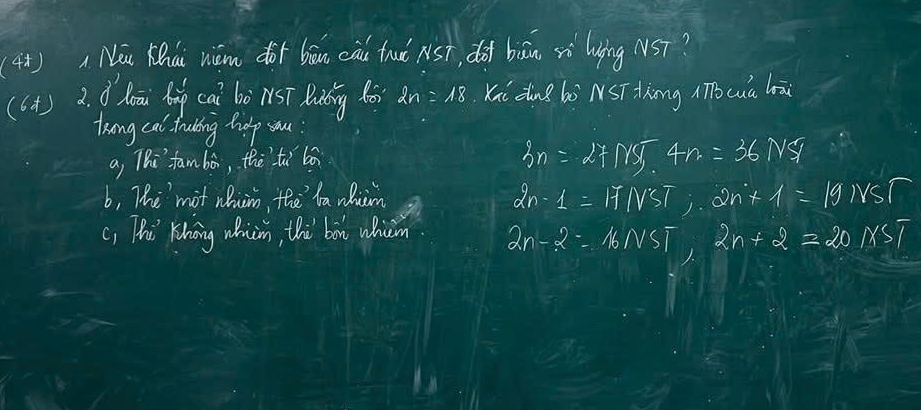 (4đ) 1. Nêu khái niệm đột biến cấu trúc NST, đột biến số lượng NST?
(6đ) 2. Ở loài bắp cải bộ NST lưỡng bội 2n = 18. Xác định bộ NST trong 1TB của loài
trong các trường hợp sau:
a, Thể tam bội, thể tứ bội 3n = 27 NST, 4n = 36 NST
b, Thể một nhiễm, thể ba nhiễm 2n - 1 = 17 NST ; 2n + 1 = 19 NST
c, Thể không nhiễm, thể bốn nhiễm. 2n - 2 = 16 NST, 2n + 2 = 20 NST